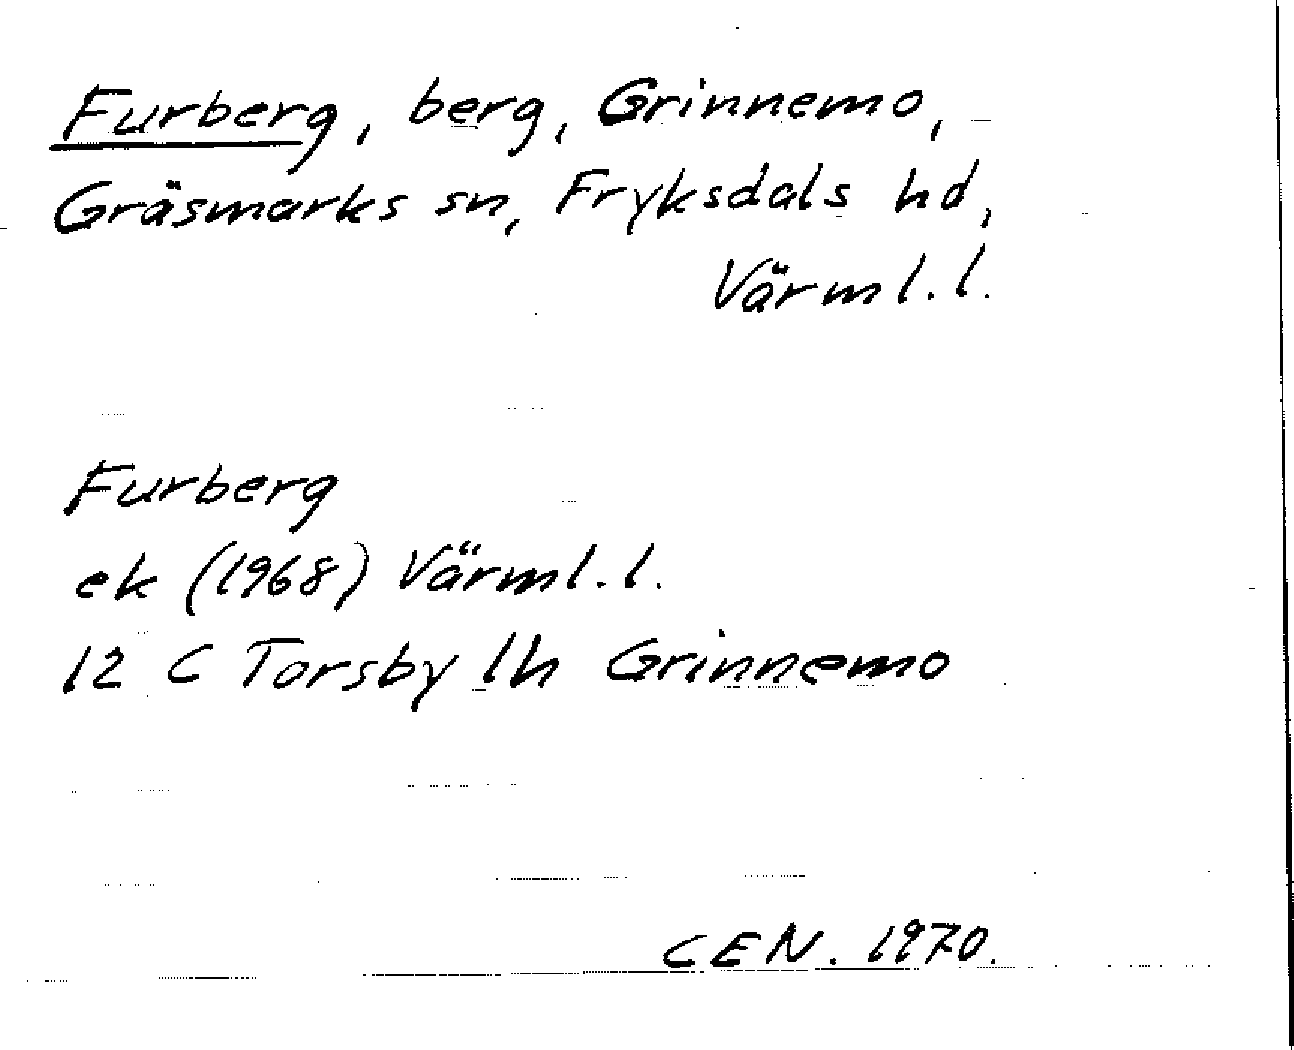 Furberg, berg, Grinnemo,
Gräsmarks sn, Fryksdals hd,
Värml. l.
Furberg
ek (1968) Värml. l.
12 C Torsby 1h Grinnemo
CEN. 1970.